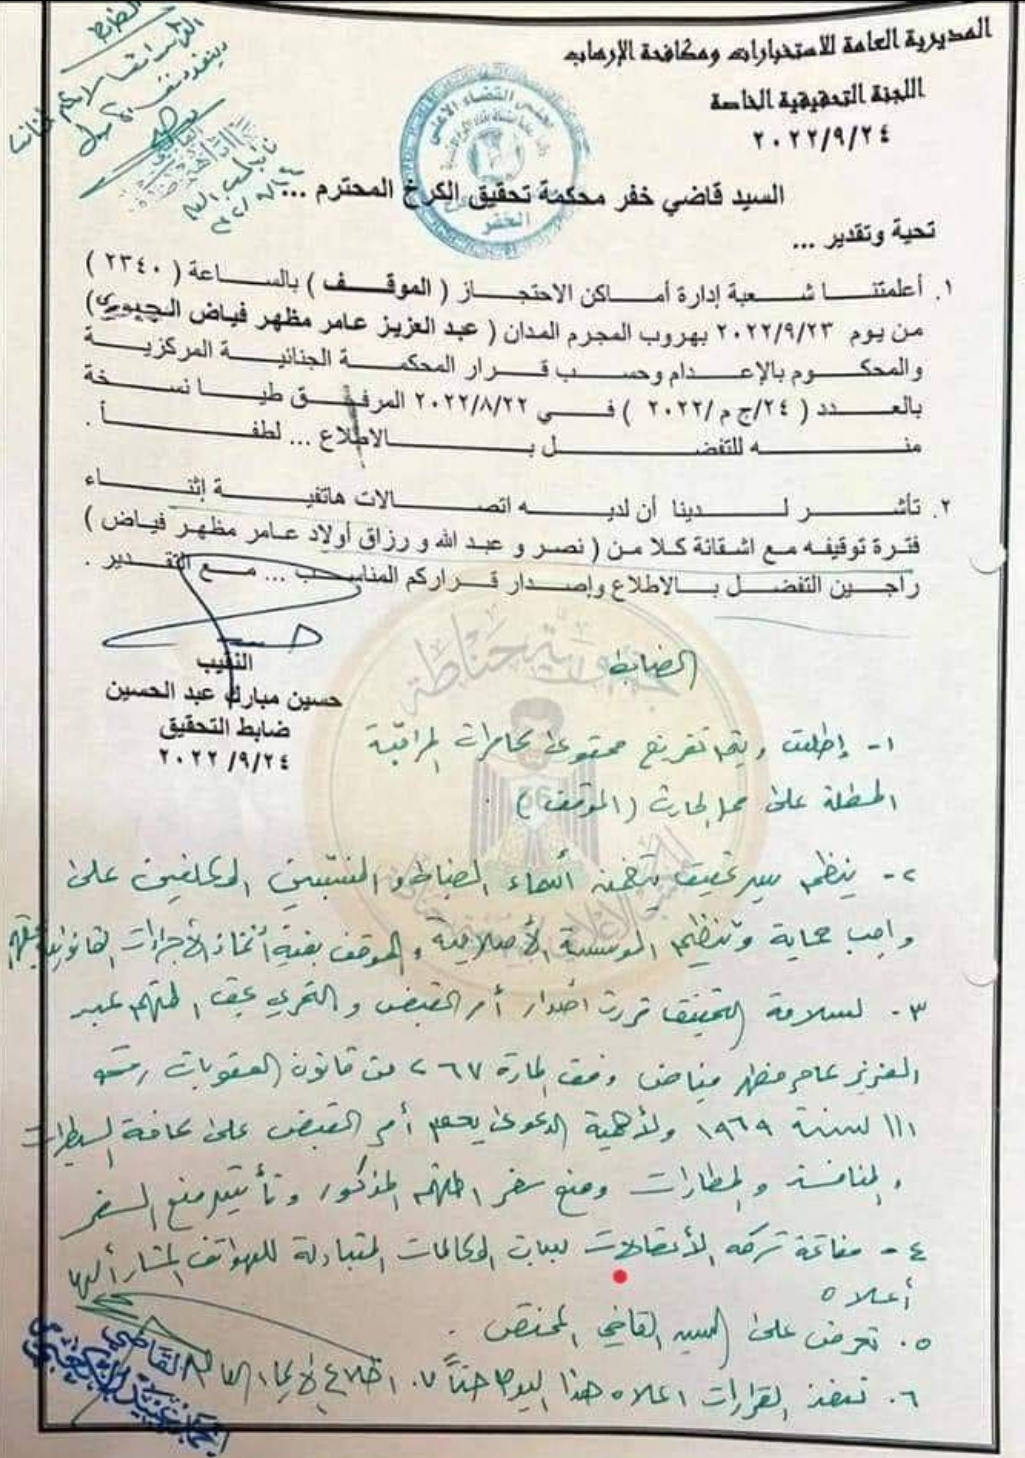 المديرية العامة للاستخبارات ومكافحة الإرهاب
اللجنة التحقيقية الخاصة
٢٠٢٢/٩/٢٤
مجلس القضاء الأعلى
الخفر
السيد قاضي خفر محكمة تحقيق الكرخ المحترم ...
تحية وتقدير ...
١. أعلمتنا شعبة إدارة أماكن الاحتجاز ( الموقف ) بالساعة ( ٢٣٤٠ )
من يوم ٢٠٢٢/٩/٢٣ بهروب المجرم المدان ( عبد العزيز عامر مظهر فياض الجبوري)
والمحكوم بالإعدام وحسب قرار المحكمة الجنائية المركزية
بالعدد ( ٢٤/ج م /٢٠٢٢ ) في ٢٠٢٢/٨/٢٢ المرفق طيا نسخة
منه للتفضل بالاطلاع ... لطفاً .
٢. تأشر لدينا أن لديه اتصالات هاتفية إثناء
فترة توقيفه مع اشقانة كلا من ( نصر و عبد الله و رزاق أولاد عامر مظهر فياض )
راجين التفضل بالاطلاع وإصدار قراركم المناسب ... مع التقدير .
النقيب
حسين مبارك عبد الحسين
ضابط التحقيق
٢٠٢٢/٩/٢٤
الضابط
١- إطلعت ويتم تفريغ محتوى كامرات المراقبة
المطلة على محل الحادث (الموقف) .
٢- ينظم سير تحقيق يتضمن أسماء الضباط و المنتسبين المكلفين على
واجب حماية وتنظيم المؤسسة الأصلاحية و الموقف بغية أتخاذ الأجراءات القانونية بحقهم
٣- لسلامة التحقيق قررت أصدار أمر القبض و التحري بحق المتهم عبد
العزيز عامر مظهر فياض وفق المادة ٢٦٧ من قانون العقوبات رقم
١١١ لسنة ١٩٦٩ ولأهمية الدعوى يعمم أمر القبض على كافة السيطرات
و المنافذ و المطارات ومنع سفر المتهم المذكور وتأشير منع السفر
٤- مفاتحة شركة الأتصالات لبيان المكالمات المتبادلة للهواتف المشار أليها
أعلاه
٥. تعرض على السيد القاضي المختص .
٦. تنفذ القرارات اعلاه هذا اليوم حتماً ٧. اطلاع الأدعاء العام
القاضي